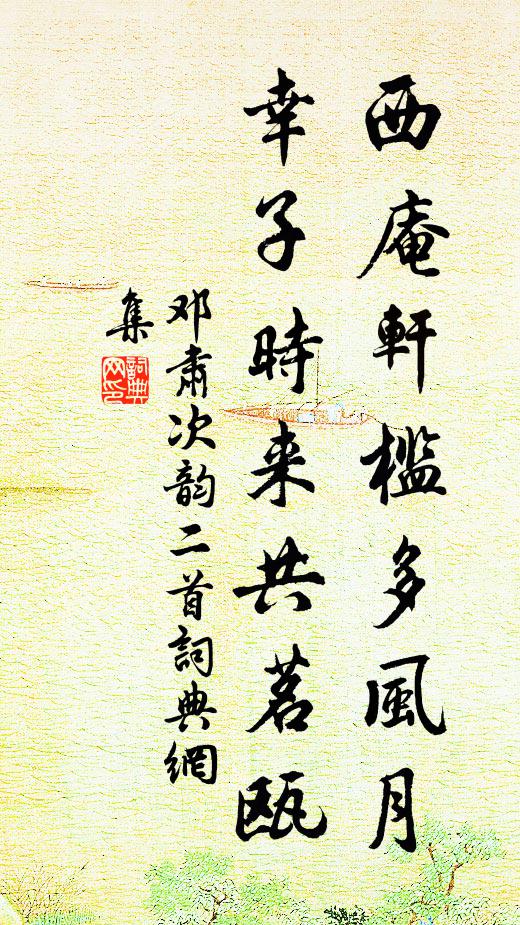 西庵軒檻多風月
幸子時来共茗瓯
邓肅次韵二首詞典網
集
詞典网印